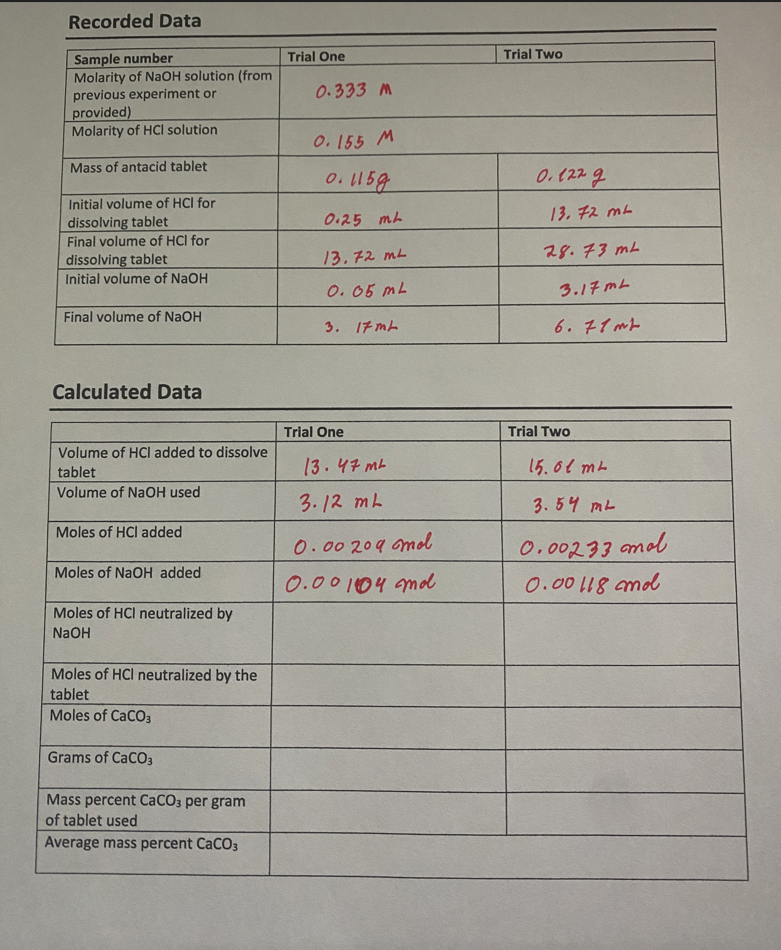 Recorded Data
Sample number Trial One Trial Two
Molarity of NaOH solution (from
previous experiment or
provided)
0.333 M
Molarity of HCl solution
0.155 M
Mass of antacid tablet
0.115g 0.122 g
Initial volume of HCl for
dissolving tablet
0.25 mL 13.72 mL
Final volume of HCl for
dissolving tablet
13.72 mL 28.73 mL
Initial volume of NaOH
0.05 mL 3.17 mL
Final volume of NaOH
3.17 mL 6.71 mL
Calculated Data
Trial One Trial Two
Volume of HCl added to dissolve
tablet
13.47 mL 15.01 mL
Volume of NaOH used
3.12 mL 3.54 mL
Moles of HCl added
0.00209 mol 0.00233 mol
Moles of NaOH added
0.00104 mol 0.00118 mol
Moles of HCl neutralized by
NaOH
Moles of HCl neutralized by the
tablet
Moles of CaCO₃
Grams of CaCO₃
Mass percent CaCO₃ per gram
of tablet used
Average mass percent CaCO₃